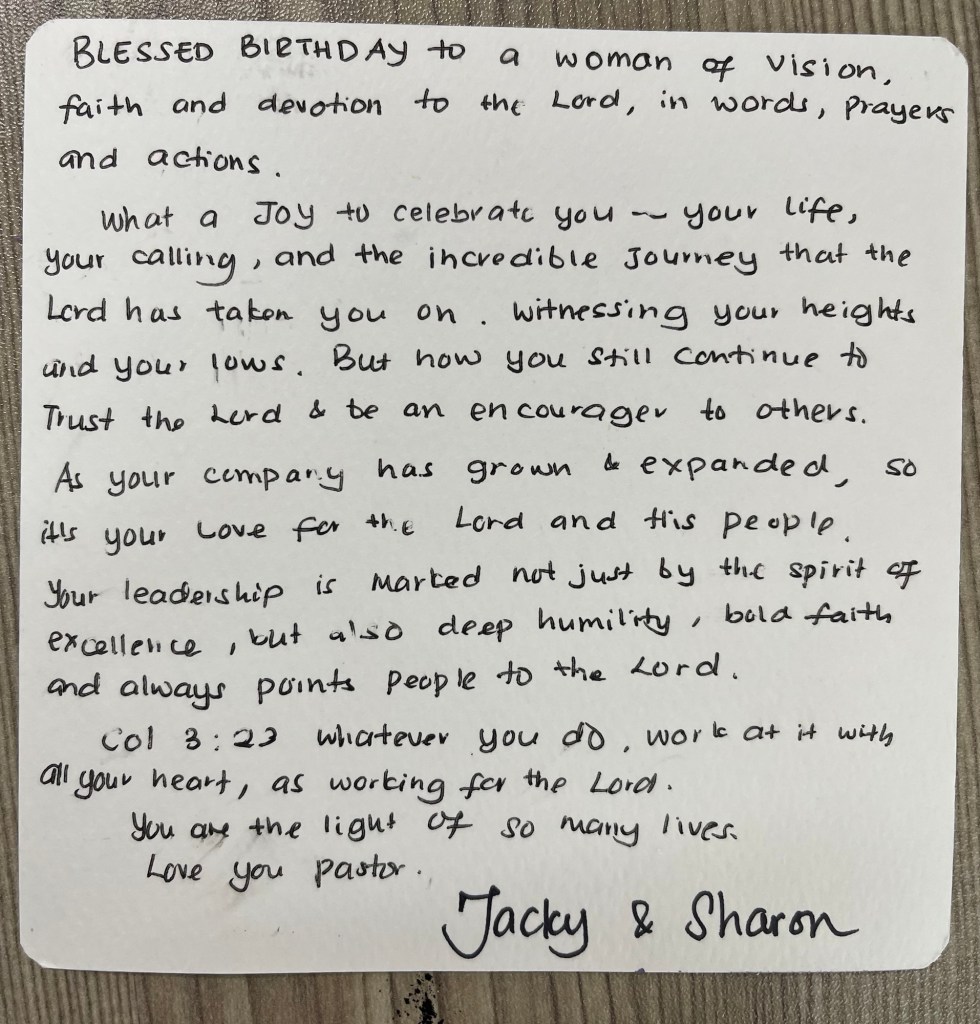 BLESSED BIRTHDAY to a woman of vision,
faith and devotion to the Lord, in words, prayers
and actions.
What a Joy to celebrate you ~ your life,
your calling, and the incredible Journey that the
Lord has taken you on. Witnessing your heights
and your lows. But how you still continue to
Trust the Lord & be an encourager to others.
As your company has grown & expanded, so
its your Love for the Lord and His people.
Your leadership is marked not just by the spirit of
excellence, but also deep humility, bold faith
and always points people to the Lord.
Col 3:23 whatever you do, work at it with
all your heart, as working for the Lord.
You are the light of so many lives.
Love you pastor.
Jacky & Sharon